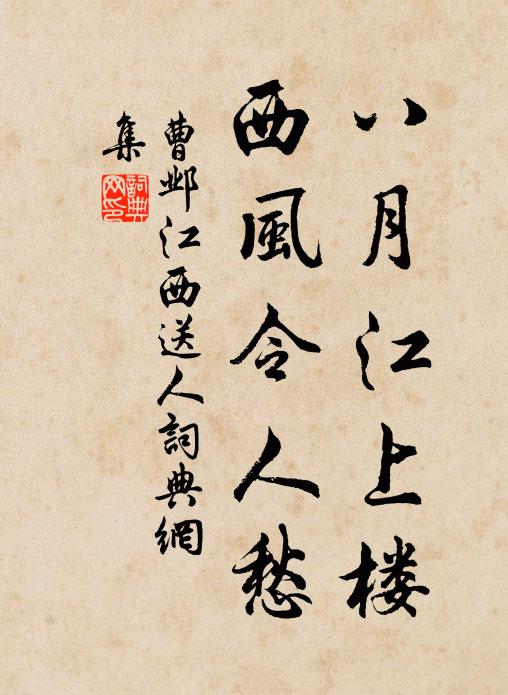 八月江上楼
西風令人愁
曹邺江西送人詞典網
集
詞典
网印